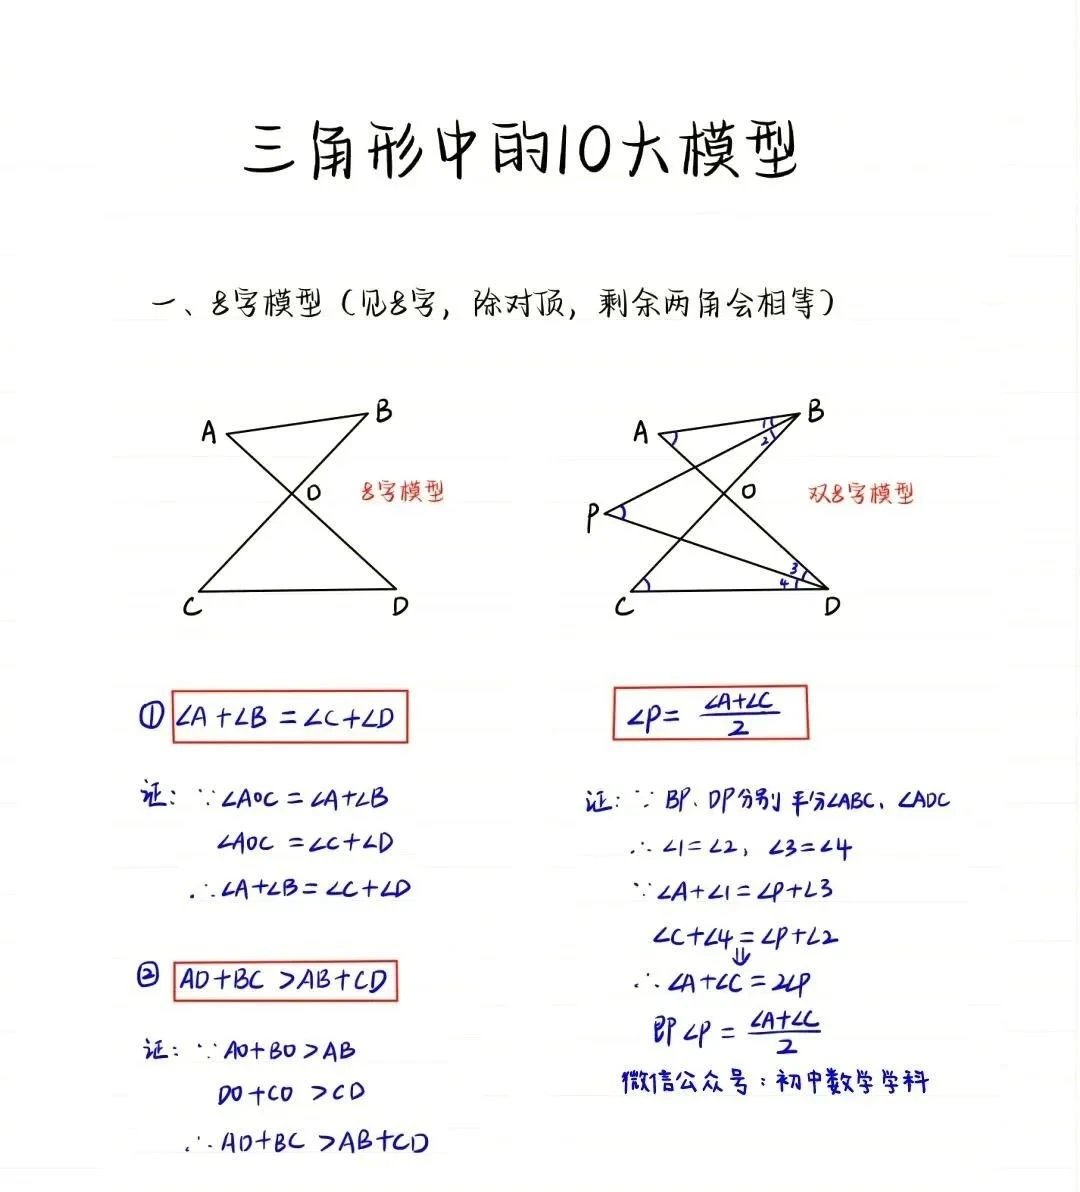 三角形中的10大模型
一、8字模型（见8字，除对顶，剩余两角会相等）
A
B
O
C
D
8字模型
A
B
1
2
O
P
3
4
C
D
双8字模型
① ∠A+∠B=∠C+∠D
证：∵∠AOC=∠A+∠B
∠AOC=∠C+∠D
∴∠A+∠B=∠C+∠D
② AD+BC>AB+CD
证：∵AO+BO>AB
DO+CO>CD
∴AD+BC>AB+CD
∠P=(∠A+∠C)/2
证：∵BP、DP分别平分∠ABC、∠ADC
∴∠1=∠2，∠3=∠4
∵∠A+∠1=∠P+∠3
∠C+∠4=∠P+∠2
⇓
∴∠A+∠C=2∠P
即∠P=(∠A+∠C)/2
微信公众号：初中数学学科